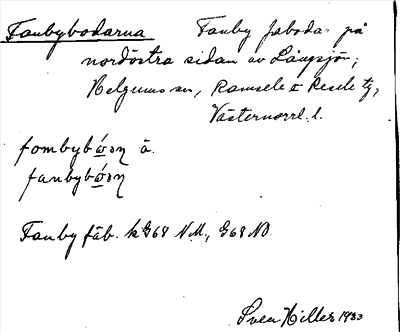 Fanbybodarna Fanby fäbodar på
nordöstra sidan av Långsjön;
Helgums sn, Ramsele o Resele tg,
Västernorrl. l.
fombyb ä.
fanbyb
Fanby fäb. k G68 NM., G68 NO.
Sven Hiller 1933